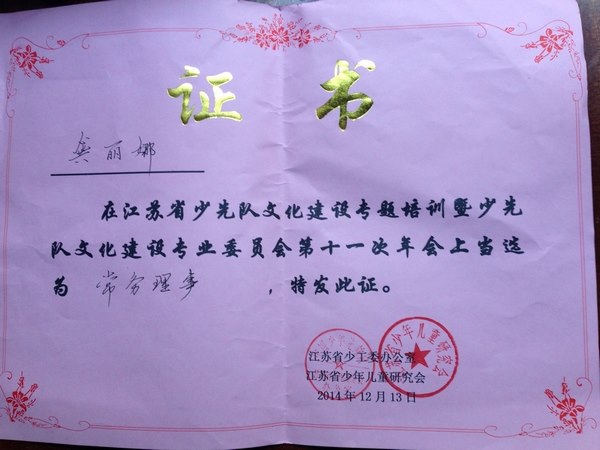 证书
龚丽娜
在江苏省少先队文化建设专题培训暨少先
队文化建设专业委员会第十一次年会上当选
为 常务理事 ，特发此证。
江苏省少工委办公室
江苏省少年儿童研究会
2014年12月13日